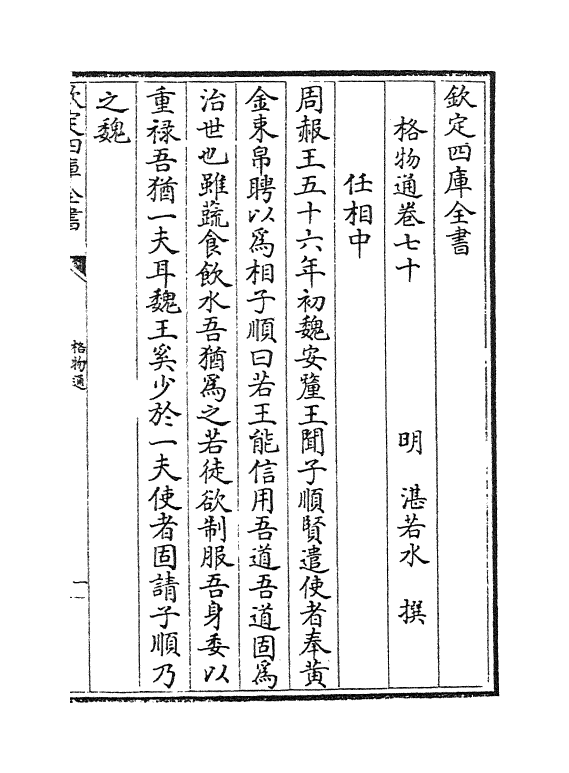 欽定四庫全書
格物通卷七十
明 湛若水 撰
任相中
周赧王五十六年初魏安釐王聞子順賢遣使者奉黃
金束帛聘以為相子順曰若王能信用吾道吾道固為
治世也雖蔬食飲水吾猶為之若徒欲制服吾身委以
重祿吾猶一夫耳魏王奚少於一夫使者固請子順乃
之魏
欽定四庫全書
格物通
一